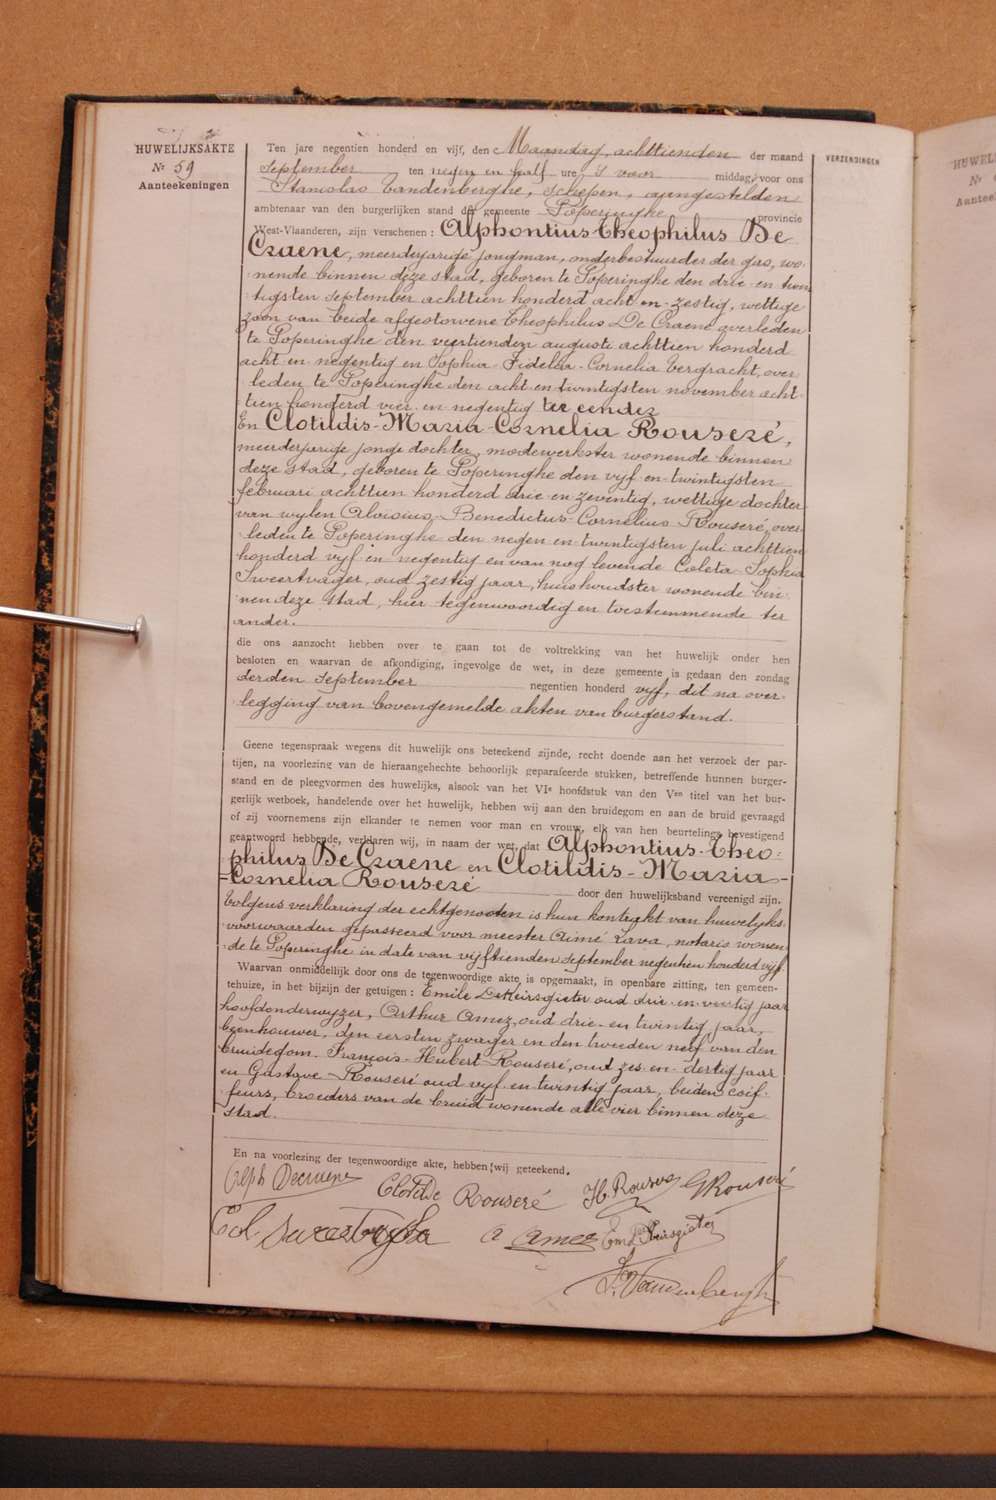 HUWELIJKSAKTE
Nr 59
Aanteekeningen
VERZENDINGEN
Ten jare negentien honderd en vijf, den Maandag, achttienden der maand
september ten negen en half ure, s voor middag, voor ons
Stanislas Vandenberghe, schepen, aangestelden
ambtenaar van den burgerlijken stand der gemeente Poperinghe provincie
West-Vlaanderen, zijn verschenen: Alphontius-Theophilus De
Craene, meerderjarige jongman, onderbestuurder der gas, wo-
nende binnen deze stad, geboren te Poperinghe den drie-en-twin
tigsten september achttien honderd acht-en-zestig, wettige
zoon van beide afgestorvene Theophilus De Craene overleden
te Poperinghe den veertienden augusti achttien honderd
acht en negentig en Sophia-Fidelia-Cornelia Vergracht, over
leden te Poperinghe den acht en twintigsten november acht-
tien honderd vier en negentig ter eender
En Clotildis-Maria-Cornelia Rouseré,
meerderjarige jonge dochter, modewerkster wonende binnen
deze stad, geboren te Poperinghe den vijf-en-twintigsten
februari achttien honderd drie en zeventig, wettige dochter
van wijlen Aloisius-Benedictus-Cornelius Rouseré, over-
leden te Poperinghe den negen-en-twintigsten juli achttien
honderd vijf en negentig en van nog levende Coleta-Sophia
Sweertvager, oud zestig jaar, huishoudster wonende bin-
nen deze stad, hier tegenwoordig en toestemmende ter
ander.
die ons aanzocht hebben over te gaan tot de voltrekking van het huwelijk onder hen
besloten en waarvan de afkondiging, ingevolge de wet, in deze gemeente is gedaan den zondag
derden september negentien honderd vijf, dit na over-
legging van bovengemelde akten van burgerstand.
Geene tegenspraak wegens dit huwelijk ons beteekend zijnde, recht doende aan het verzoek der par-
tijen, na voorlezing van de hieraangehechte behoorlijk geparafeerde stukken, betreffende hunnen burger-
stand en de pleegvormen des huwelijks, alsook van het VIe hoofdstuk van den Ven titel van het bur-
gerlijk wetboek, handelende over het huwelijk, hebben wij aan den bruidegom en aan de bruid gevraagd
of zij voornemens zijn elkander te nemen voor man en vrouw, elk van hen beurtelings bevestigend
geantwoord hebbende, verklaren wij, in naam der wet, dat Alphontius-Theo-
philus De Craene en Clotildis-Maria-
Cornelia Rouseré door den huwelijksband vereenigd zijn.
Volgens verklaring der echtgenooten is hun kontrakt van huwelijks-
voorwaarden gepasseerd voor meester Aimé Lava, notaris wonen-
de te Poperinghe in date van vijftienden september negentien honderd vijf.
Waarvan onmiddelijk door ons de tegenwoordige akte is opgemaakt, in openbare zitting, ten gemeen-
tehuize, in het bijzijn der getuigen: Emile DeKeirsgieter oud drie-en-veertig jaar
hoofdonderwijzer, Arthur Amez, oud drie-en-twintig jaar,
beenhouwer, den eersten zwager en den tweeden neef van den
bruidegom. François-Hubert Rouseré, oud zes-en-dertig jaar
en Gustave Rouseré oud vijf-en-twintig jaar, beiden coif-
feurs, broeders van de bruid wonende alle vier binnen deze
stad.
En na voorlezing der tegenwoordige akte, hebben wij geteekend.
Alph Decraene Clotilde Rouseré H. Rouseré G Rouseré
Col A Amez Em DeKeirsgieter
St. Vandenberghe